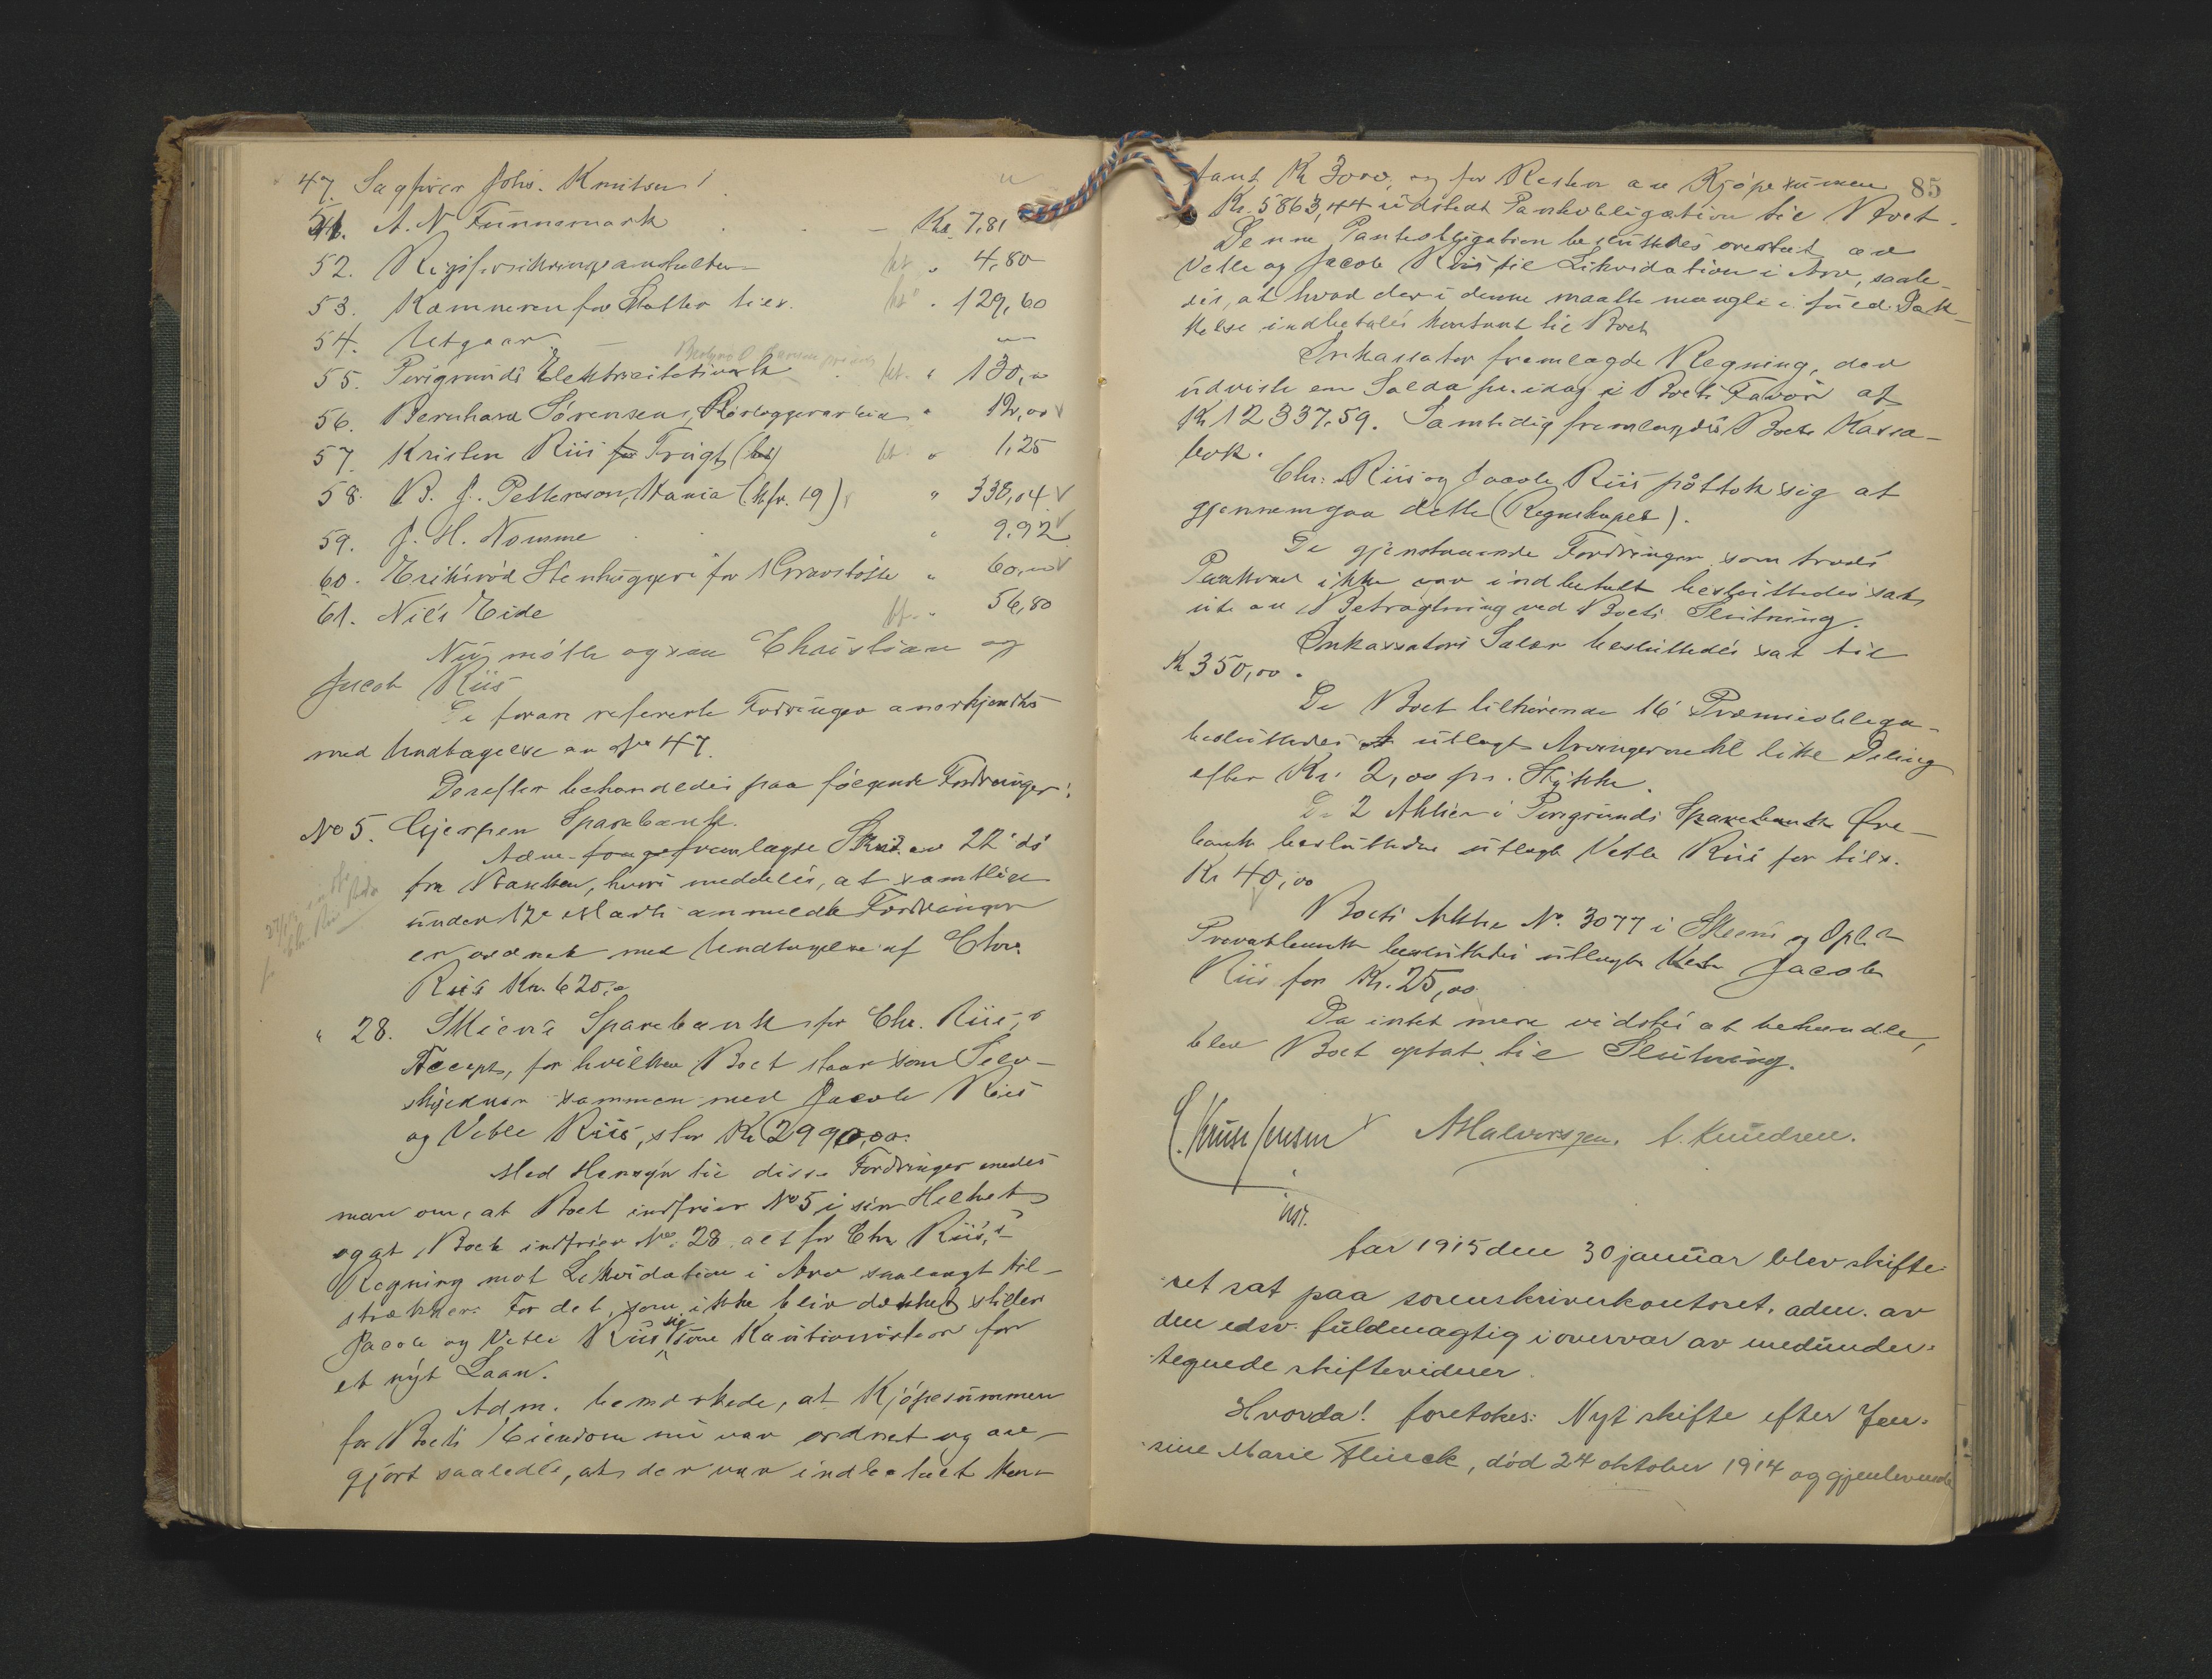 47. Sagfører Johs. Knutsen
51. A. N. Funnemark — Kr. 7,81
52. Rigsforsikringsanstalten bet. " 4,80
53. Kæmneren for Skatter tils. bet. " 129,60
54. Utgaar —
55. Porsgrunds Elektricitetsverk bet. " 130,00
56. Bernhard Sörensen, Rörleggerarbeid " 12,00
57. Kristen Riis for Frugt (bet) bet. " 1,25
58. B. J. Petterson, Kania (kfr. 19) " 338,04
59. J. H. Nomme " 9,92
60. Eriksröd Stenhuggeri for 1 Gravstötte " 60,00
61. Nils Eide bet. " 56,80
Nu mötte ogsaa Christian og
Jacob Riis
De foran refererte Fordringer anerkjendtes
med Undtagelse av No 47.
Derefter behandledes paa følgende Fordringer:
No 5. Gjerpen Sparebank.
Adm. fremlagde Skriv. av 22 ds
fra Banken, hvori meddeles, at samtlige
under 12te Marts anmeldte Fordringer
er ordnet med Undtagelse af Chr.
Riis Kr. 620,00
" 28. Skiens Sparebank for Chr. Riis's
Accept, for hvilken Boet staar som Selv-
skyldner sammen med Jacob Riis
og Vetle Riis, stor Kr 2990,00.
Med Hensyn til disse Fordringer enedes
man om, at Boet indfrier No 5 i sin Helhet
og at Boet indfrier No. 28 alt for Chr. Riis's
Regning mot Likvidation i Arv saalangt til-
strækker. For det, som ikke blir dækket stiller
Jacob og Vetle Riis sig som Kautionister for
et nyt Laan.
Adm. bemerkede, at Kjöpesummen
for Boets Eiendom nu var ordnet og av-
gjort saaledes, at der var indbetalt kon-
85
tant Kr 3000, og for Resten av Kjöpesummen
Kr. 5863,44 udstedt Panteobligation til Boet.
Denne Panteobligation besluttedes overtat av
Vetle og Jacob Riis til Likvidation i Arv, saale-
des, at hvad der i denne maatte mangle i fuld Dæk-
kelse indbetales kontant til Boet
Inkassator fremlagde Regning, der
udviste en Saldo pr. idag i Boets Favör af
Kr 12337,59. Samtidig fremlagdes Boets Kassa-
bok.
Chr. Riis og Jacob Riis påtok sig at
gjennemgaa dette (Regnskapet).
De gjenstaaende Fordringer som trods
Paakrav ikke var indbetalt besluttedes sat
ut av Betragtning ved Boets Slutning.
Inkassators Salær besluttedes sat til
Kr 350,00.
De Boet tilhörende 16 Præmieobliga-
besluttedes utlagt Arvingerne til like Deling
efter Kr. 2,00 pr. Stykke.
De 2 Aktier i Porsgrunds Sparebank Öre-
bank besluttedes utlagt Vetle Riis for tils.
Kr 40,00
Boets Aktie No. 3077 i Skiens og Opl.s
Privatbank besluttedes utlagt Vetle Jacob
Riis for Kr. 25,00
Da intet mere vidstes at behandle,
blev Boet optat til Slutning.
C. Kruse Jensen A Halvorsen. A. Knudsen.
Aar 1915 den 30 januar blev skifte-
ret sat paa sorenskriverkontoret. adm. av
den edsv. fuldmægtig i overvær av medunder-
tegnede skiftevidner.
Hvorda! foretokes: Nyt skifte efter Jen-
sine Marie Flueck, död 24 oktober 1914 og gjenlevende